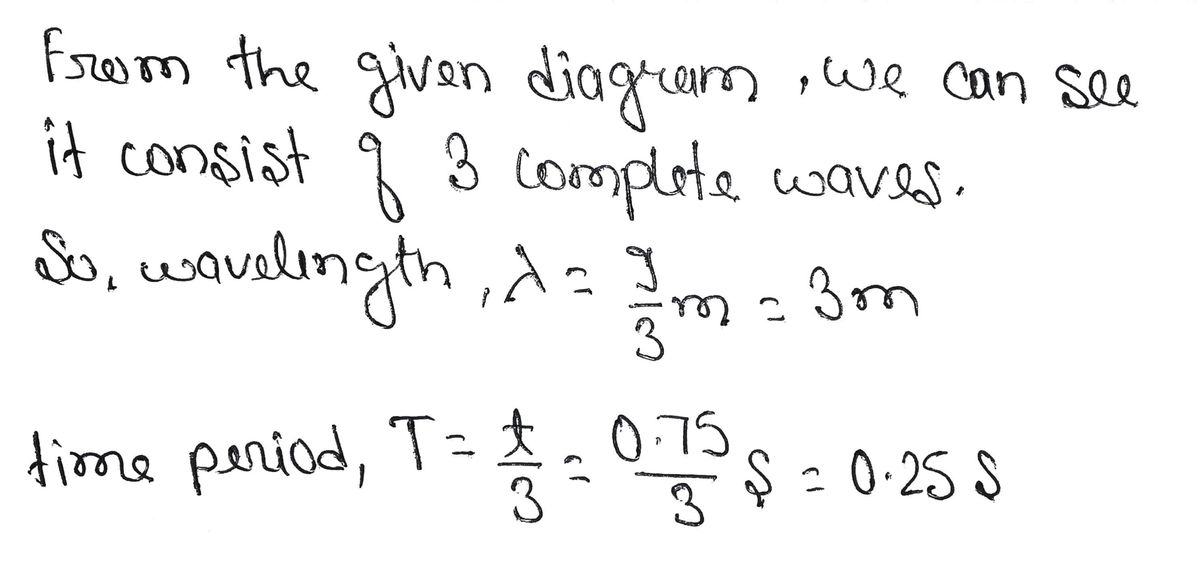 From the given diagram, we can see
it consist of 3 complete waves.
So, wavelength, λ = 9/3 m = 3m
time period, T = t/3 = 0.75/3 s = 0.25 s